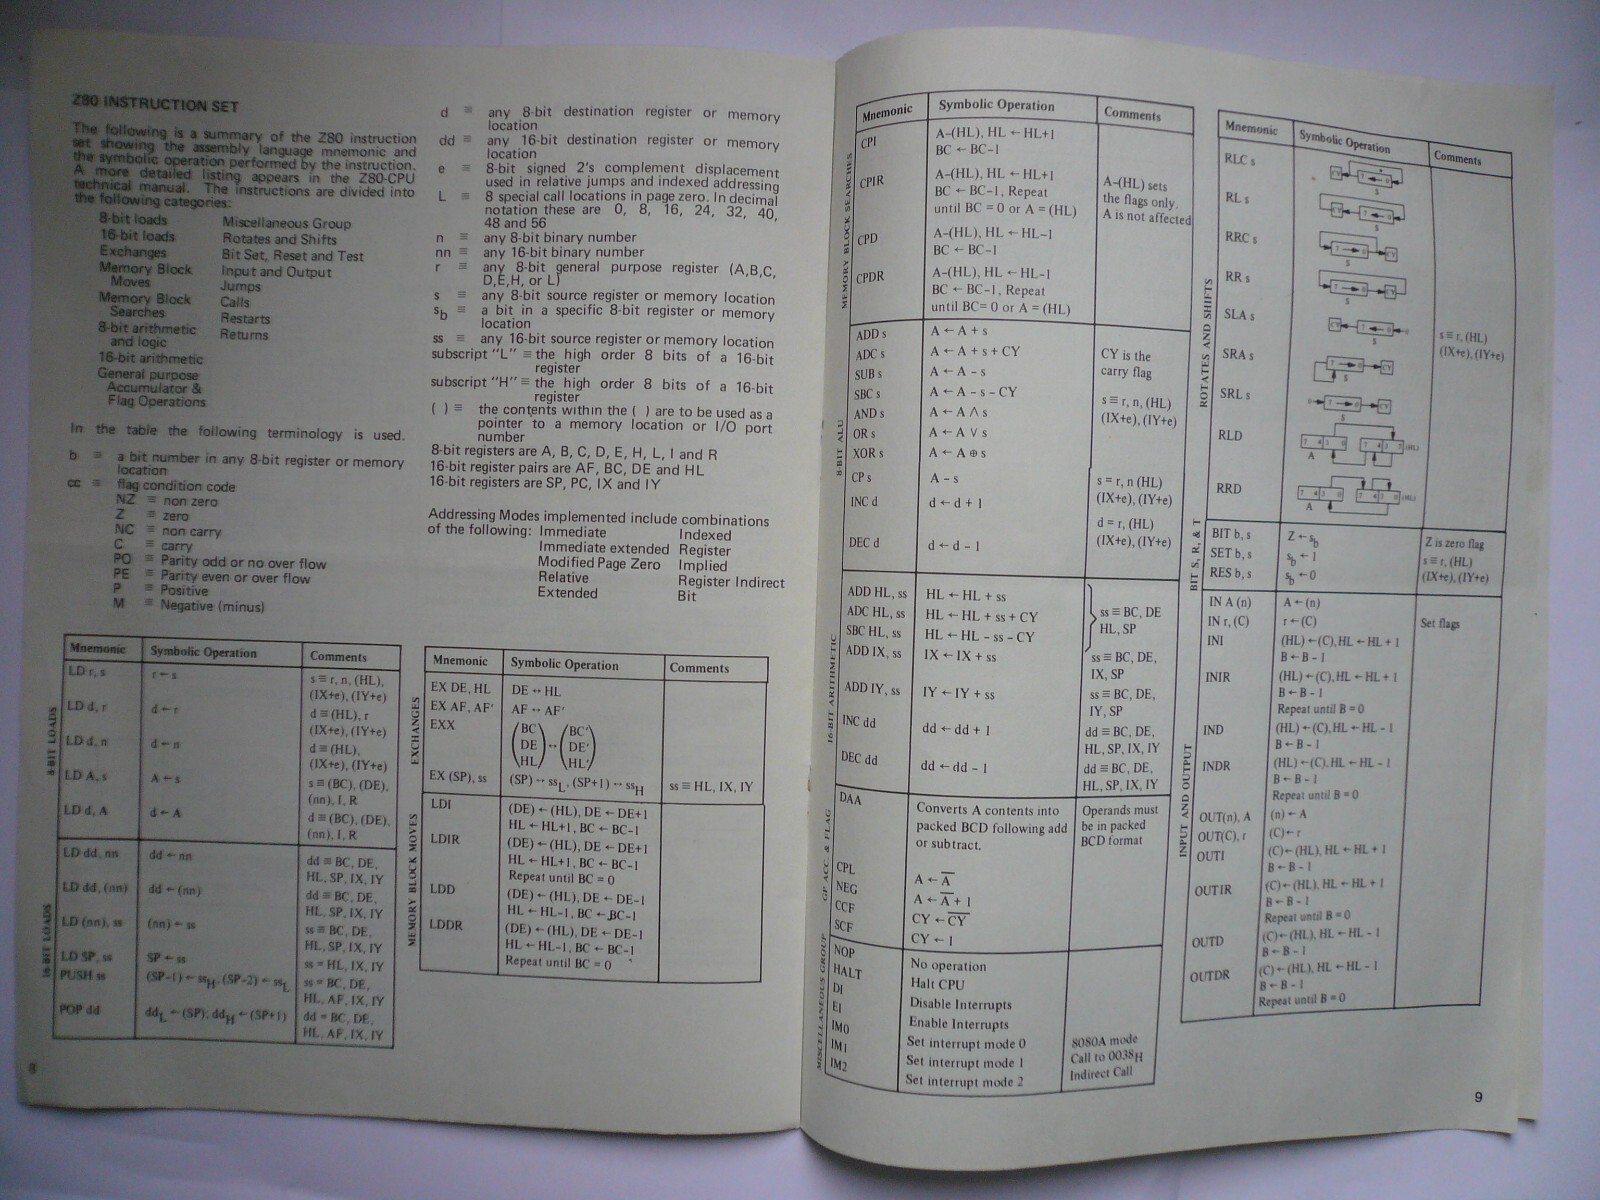 Z80 INSTRUCTION SET
The following is a summary of the Z80 instruction
set showing the assembly language mnemonic and
the symbolic operation performed by the instruction.
A more detailed listing appears in the Z80-CPU
technical manual. The instructions are divided into
the following categories:
8-bit loads
16-bit loads
Exchanges
Memory Block
Moves
Memory Block
Searches
8-bit arithmetic
and logic
16-bit arithmetic
General purpose
Accumulator &
Flag Operations
Miscellaneous Group
Rotates and Shifts
Bit Set, Reset and Test
Input and Output
Jumps
Calls
Restarts
Returns
In the table the following terminology is used.
b ≡ a bit number in any 8-bit register or memory
location
cc ≡ flag condition code
NZ ≡ non zero
Z ≡ zero
NC ≡ non carry
C ≡ carry
PO ≡ Parity odd or no over flow
PE ≡ Parity even or over flow
P ≡ Positive
M ≡ Negative (minus)
d ≡ any 8-bit destination register or memory
location
dd ≡ any 16-bit destination register or memory
location
e ≡ 8-bit signed 2's complement displacement
used in relative jumps and indexed addressing
L ≡ 8 special call locations in page zero. In decimal
notation these are 0, 8, 16, 24, 32, 40,
48 and 56
n ≡ any 8-bit binary number
nn ≡ any 16-bit binary number
r ≡ any 8-bit general purpose register (A,B,C,
D,E,H, or L)
s ≡ any 8-bit source register or memory location
sb ≡ a bit in a specific 8-bit register or memory
location
ss ≡ any 16-bit source register or memory location
subscript "L" ≡ the high order 8 bits of a 16-bit
register
subscript "H" ≡ the high order 8 bits of a 16-bit
register
( ) ≡ the contents within the ( ) are to be used as a
pointer to a memory location or I/O port
number
8-bit registers are A, B, C, D, E, H, L, I and R
16-bit register pairs are AF, BC, DE and HL
16-bit registers are SP, PC, IX and IY
Addressing Modes implemented include combinations
of the following: Immediate Indexed
Immediate extended Register
Modified Page Zero Implied
Relative Register Indirect
Extended Bit
Mnemonic Symbolic Operation Comments
8-BIT LOADS
LD r, s r←s s≡r, n, (HL),
(IX+e), (IY+e)
LD d, r d←r d≡(HL), r
(IX+e), (IY+e)
LD d, n d←n d≡(HL),
(IX+e), (IY+e)
LD A, s A←s s≡(BC), (DE),
(nn), I, R
LD d, A d←A d≡(BC), (DE),
(nn), I, R
16-BIT LOADS
LD dd, nn dd←nn dd≡BC, DE,
HL, SP, IX, IY
LD dd, (nn) dd←(nn) dd≡BC, DE,
HL, SP, IX, IY
LD (nn), ss (nn)←ss ss≡BC, DE,
HL, SP, IX, IY
LD SP, ss SP←ss ss = HL, IX, IY
PUSH ss (SP-1)←ssH; (SP-2)←ssL ss = BC, DE,
HL, AF, IX, IY
POP dd ddL←(SP); ddH←(SP+1) dd = BC, DE,
HL, AF, IX, IY
8
Mnemonic Symbolic Operation Comments
EXCHANGES
EX DE, HL DE↔HL
EX AF, AF' AF↔AF'
EXX (BC DE HL)↔(BC' DE' HL')
EX (SP), ss (SP)↔ssL, (SP+1)↔ssH ss≡HL, IX, IY
MEMORY BLOCK MOVES
LDI (DE)←(HL), DE←DE+1
HL←HL+1, BC←BC-1
LDIR (DE)←(HL), DE←DE+1
HL←HL+1, BC←BC-1
Repeat until BC = 0
LDD (DE)←(HL), DE←DE-1
HL←HL-1, BC←BC-1
LDDR (DE)←(HL), DE←DE-1
HL←HL-1, BC←BC-1
Repeat until BC = 0
Mnemonic Symbolic Operation Comments
MEMORY BLOCK SEARCHES
CPI A-(HL), HL←HL+1
BC←BC-1
CPIR A-(HL), HL←HL+1
BC←BC-1, Repeat
until BC = 0 or A = (HL)
CPD A-(HL), HL←HL-1
BC←BC-1
CPDR A-(HL), HL←HL-1
BC←BC-1, Repeat
until BC= 0 or A = (HL)
A-(HL) sets
the flags only.
A is not affected
8-BIT ALU
ADD s A←A + s
ADC s A←A + s + CY
SUB s A←A - s
SBC s A←A - s - CY
AND s A←A ∧ s
OR s A←A ∨ s
XOR s A←A ⊕ s
CP s A - s
INC d d←d + 1
DEC d d←d - 1
CY is the
carry flag
s≡r, n, (HL)
(IX+e), (IY+e)
s = r, n (HL)
(IX+e), (IY+e)
d = r, (HL)
(IX+e), (IY+e)
16-BIT ARITHMETIC
ADD HL, ss HL←HL + ss
ADC HL, ss HL←HL + ss + CY
SBC HL, ss HL←HL - ss - CY
ss≡BC, DE
HL, SP
ADD IX, ss IX←IX + ss ss≡BC, DE,
IX, SP
ADD IY, ss IY←IY + ss ss≡BC, DE,
IY, SP
INC dd dd←dd + 1 dd≡BC, DE,
HL, SP, IX, IY
DEC dd dd←dd - 1 dd≡BC, DE,
HL, SP, IX, IY
GP ACC. & FLAG
DAA Converts A contents into
packed BCD following add
or subtract.
Operands must
be in packed
BCD format
CPL A←A̅
NEG A←A̅ + 1
CCF CY←C̅Y̅
SCF CY←1
MISCELLANEOUS GROUP
NOP No operation
HALT Halt CPU
DI Disable Interrupts
EI Enable Interrupts
IM0 Set interrupt mode 0 8080A mode
IM1 Set interrupt mode 1 Call to 0038H
IM2 Set interrupt mode 2 Indirect Call
Mnemonic Symbolic Operation Comments
ROTATES AND SHIFTS
RLC s
RL s
RRC s
RR s
SLA s
SRA s
SRL s
RLD
RRD
s≡r, (HL)
(IX+e), (IY+e)
BIT S, R, & T
BIT b, s Z←sb Z is zero flag
SET b, s sb←1 s≡r, (HL)
RES b, s sb←0 (IX+e), (IY+e)
INPUT AND OUTPUT
IN A (n) A←(n)
IN r, (C) r←(C) Set flags
INI (HL)←(C), HL←HL + 1
B←B - 1
INIR (HL)←(C), HL←HL + 1
B←B - 1
Repeat until B = 0
IND (HL)←(C), HL←HL - 1
B←B - 1
INDR (HL)←(C), HL←HL - 1
B←B - 1
Repeat until B = 0
OUT(n), A (n)←A
OUT(C), r (C)←r
OUTI (C)←(HL), HL←HL + 1
B←B - 1
OUTIR (C)←(HL), HL←HL + 1
B←B - 1
Repeat until B = 0
OUTD (C)←(HL), HL←HL - 1
B←B - 1
OUTDR (C)←(HL), HL←HL - 1
B←B - 1
Repeat until B = 0
9